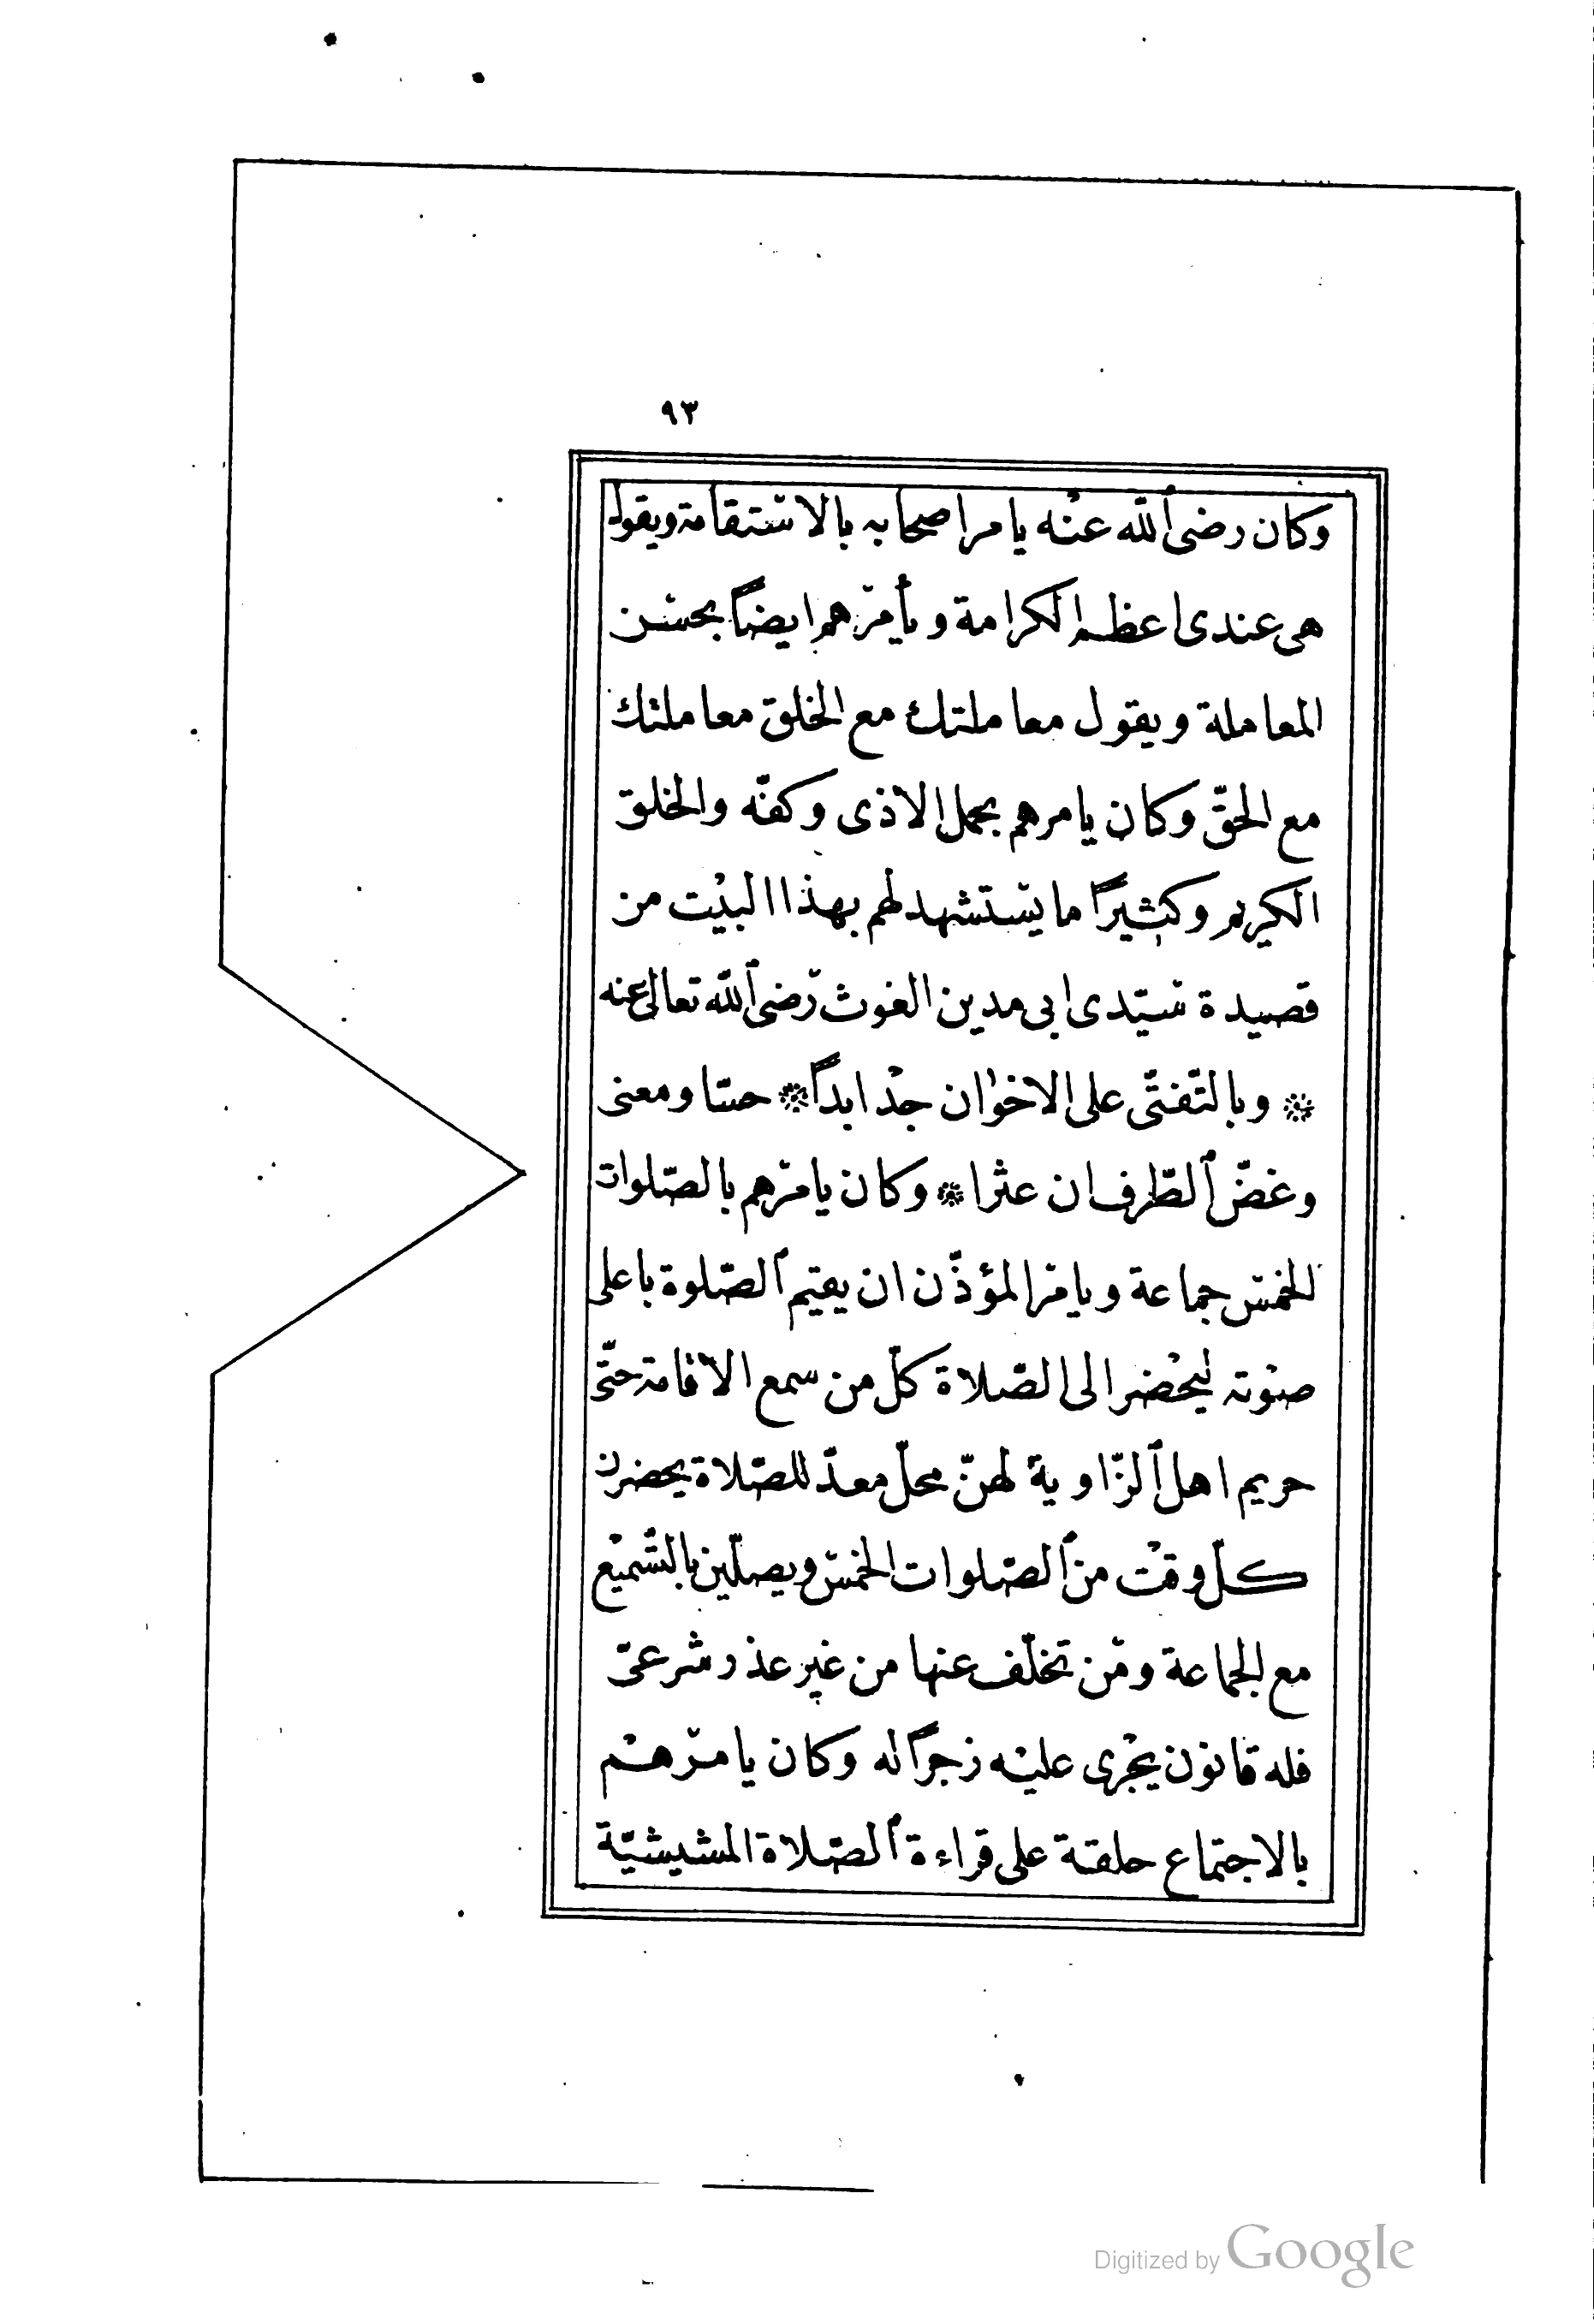 ٩٣
وكان رضى ٱللّه عنْه يامر اصحابه بالاسْتقامة ويقول
هى عندى اعظم الكرامة ويأمرْهم ايضاً بحسْن
المعاملة ويقول معاملتك مع الخلق معاملتك
مع الحقّ وكان يامرهم بحمل الاذى وكفّه والخلق
الكريم وكثيراً ما يسْتشهد لهم بهذا البيْت من
قصيدة سيّدى ابى مدين الغوث رضى ٱللّه تعالى عنه
* وبالتّفتّى على الاخوان جدْ ابداً * حسّا ومعنى
وغضّ ٱلطّرف ان عثرا * وكان يامرْهم بالصّلوات
الخمْس جماعة ويامْر المؤذّن ان يقيم ٱلصّلوة باعلى
صوْته ليحْضر الى الصّلاة كلّ من سمع الاقامة حتّى
حريم اهل ٱلزّاوية لهنّ محلّ معدّ للصّلاة يحضرن
كلّ وقْت من ٱلصّلوات الخمْس ويصلّين بالتّسْميْع
مع الجماعة ومْن تخلّف عنها من غير عذر شرعىّ
فله قانون يجْرى عليْه زجراً له وكان يامرْهمْ
بالاجتماع حلقة على قراءة ٱلصّلاة المشيشيّة
Digitized by Google